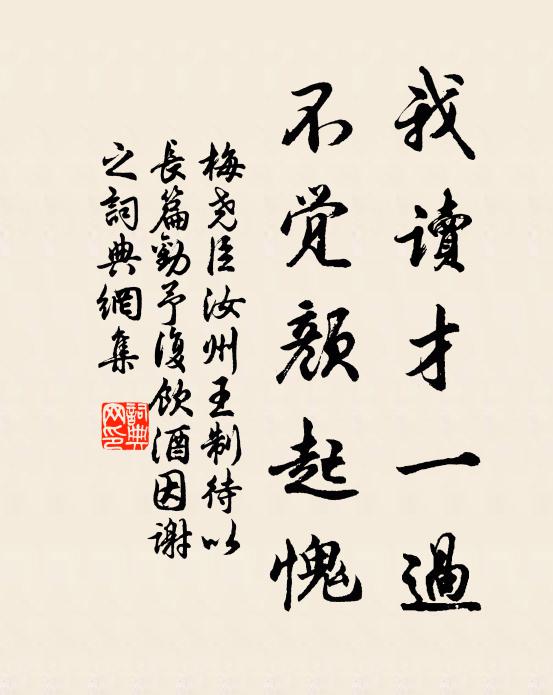 我讀才一過
不觉顏起愧
梅尧臣汝州王制待以
長篇勸予復飲酒因謝
之詞典網集
詞典网印